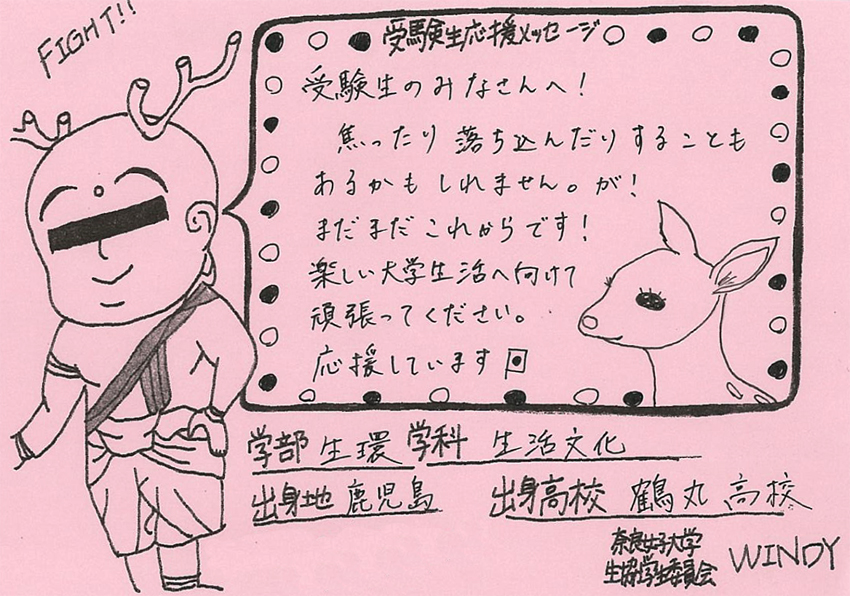 FIGHT!!
受験生応援メッセージ
受験生のみなさんへ!
焦ったり落ち込んだりすることも
あるかもしれません。が!
まだまだこれからです!
楽しい大学生活へ向けて
頑張ってください。
応援しています
学部 生環 学科 生活文化
出身地 鹿児島 出身高校 鶴丸高校
奈良女子大学
生協学生委員会 WINDY